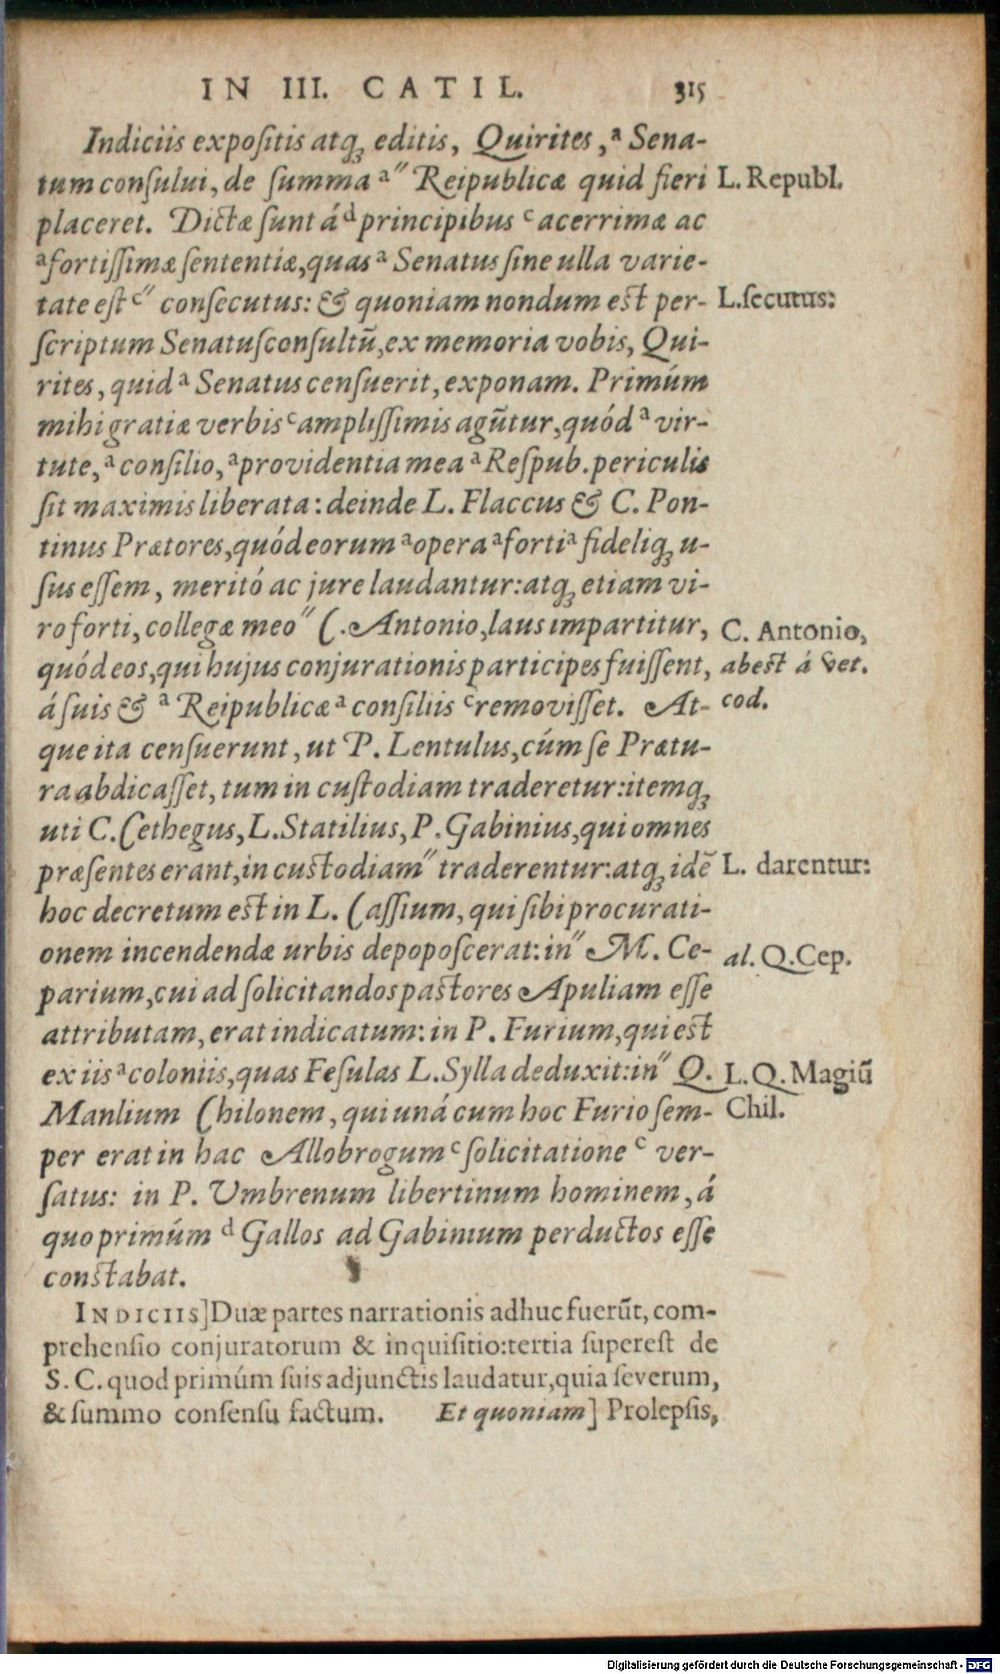 IN III. CATIL. 315
Indiciis expoſitis atq́ꝫ editis, Quirites, ᵃ Sena-
tum conſului, de ſumma ᵃ″ Reipublicæ quid fieri
L. Republ.
placeret. Dictæ ſunt á ᵈ principibus ᶜ acerrimæ ac
ᵃ fortiſſimæ ſententiæ, quas ᵃ Senatus ſine ulla varie-
tate eſt ᶜ″ conſecutus: & quoniam nondum eſt per-
L. ſecutus:
ſcriptum Senatuſconſultū, ex memoria vobis, Qui-
rites, quid ᵃ Senatus cenſuerit, exponam. Primúm
mihi gratiæ verbis ᶜ ampliſſimis agūtur, quód ᵃ vir-
tute, ᵃ conſilio, ᵃ providentia mea ᵃ Reſpub. periculis
ſit maximis liberata: deinde L. Flaccus & C. Pon-
tinus Prætores, quód eorum ᵃ opera ᵃ forti ᵃ fideliqꝫ u-
ſus eſſem, meritó ac jure laudantur: atqꝫ etiam vi-
ro forti, collegæ meo ″ C. Antonio, laus impartitur,
C. Antonio,
quód eos, qui hujus conjurationis participes fuiſſent,
abeſt á vet.
á ſuis & ᵃ Reipublicæ ᵃ conſiliis ᶜ removiſſet. At-
cod.
que ita cenſuerunt, ut P. Lentulus, cúm ſe Prætu-
ra abdicaſſet, tum in cuſtodiam traderetur: itemqꝫ
uti C. Cethegus, L. Statilius, P. Gabinius, qui omnes
præſentes erant, in cuſtodiam ″ traderentur: atqꝫ idē
L. darentur:
hoc decretum eſt in L. Caſſium, qui ſibi procurati-
onem incendendæ urbis depopoſcerat: in ″ M. Ce-
al. Q. Cep.
parium, cui ad ſolicitandos paſtores Apuliam eſſe
attributam, erat indicatum: in P. Furium, qui eſt
ex iis ᵃ coloniis, quas Feſulas L. Sylla deduxit: in ″ Q.
L. Q. Magiū
Manlium Chilonem, qui uná cum hoc Furio ſem-
Chil.
per erat in hac Allobrogum ᶜ ſolicitatione ᶜ ver-
ſatus: in P. Umbrenum libertinum hominem, á
quo primúm ᵈ Gallos ad Gabinium perductos eſſe
conſtabat.
INDICIIS] Duæ partes narrationis adhuc fuerūt, com-
prehenſio conjuratorum & inquiſitio: tertia ſupereſt de
S. C. quod primúm ſuis adjunctis laudatur, quia ſeverum,
& ſummo conſenſu factum. Et quoniam] Prolepſis,
Digitalisierung gefördert durch die Deutsche Forschungsgemeinschaft - DFG